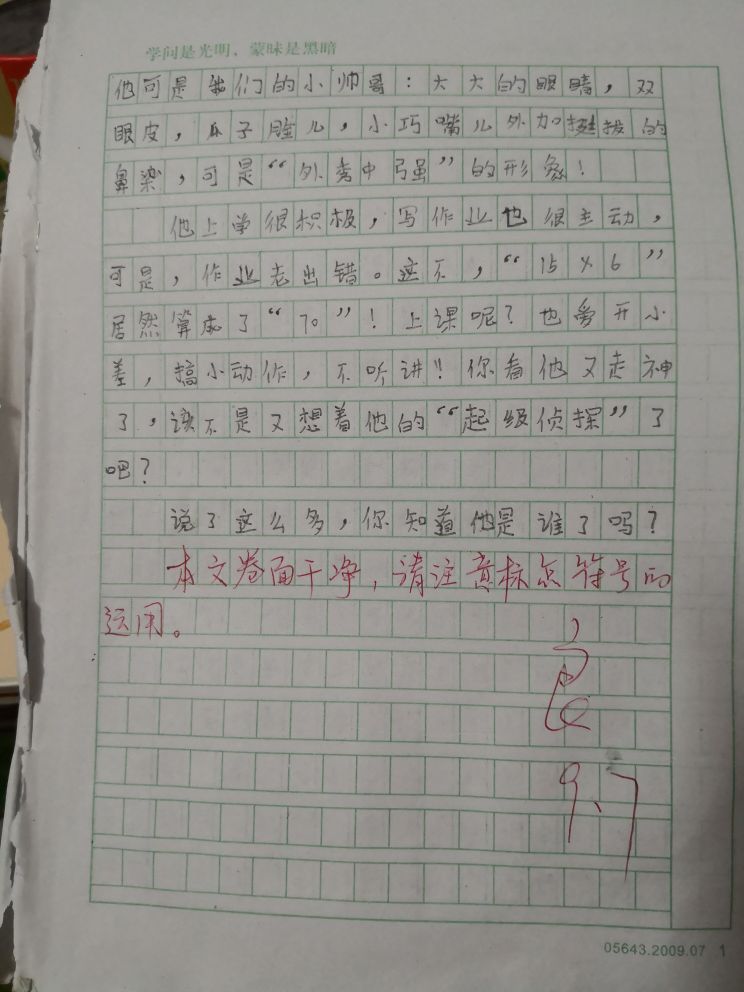 学问是光明、蒙昧是黑暗
他可是我们的小帅哥：大大的眼睛，双
眼皮，瓜子脸儿，小巧嘴儿外加挺拔的
鼻梁，可是“外秀中强”的形象！
他上学很积极，写作业也很主动，
可是，作业老出错。这不，“15×6”
居然算成了“70”！上课呢？也爱开小
差，搞小动作，不听讲!!你看他又走神
了，该不是又想着他的“起级侦探”了
吧？
说了这么多，你知道他是谁了吗？
本文卷面干净，请注意标点符号的
运用。
良
9.7
05643.2009.07 1